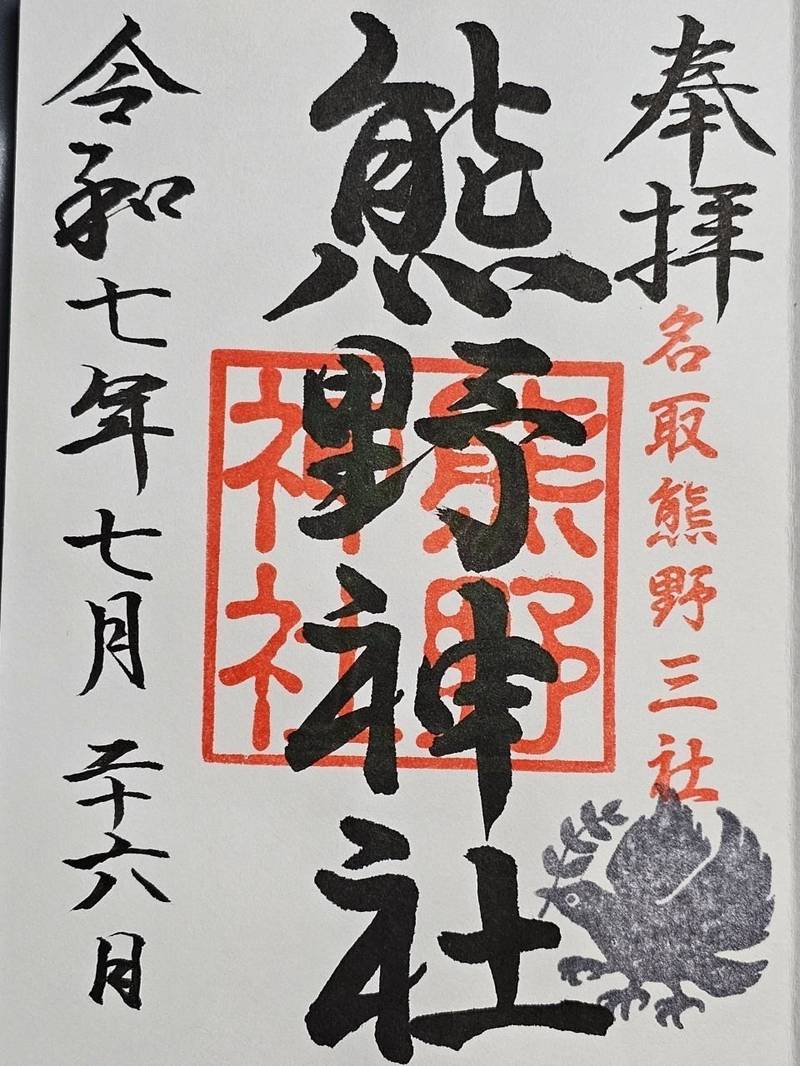 奉拝
名取熊野三社
熊野神社
熊野
神社
令和七年七月二十六日